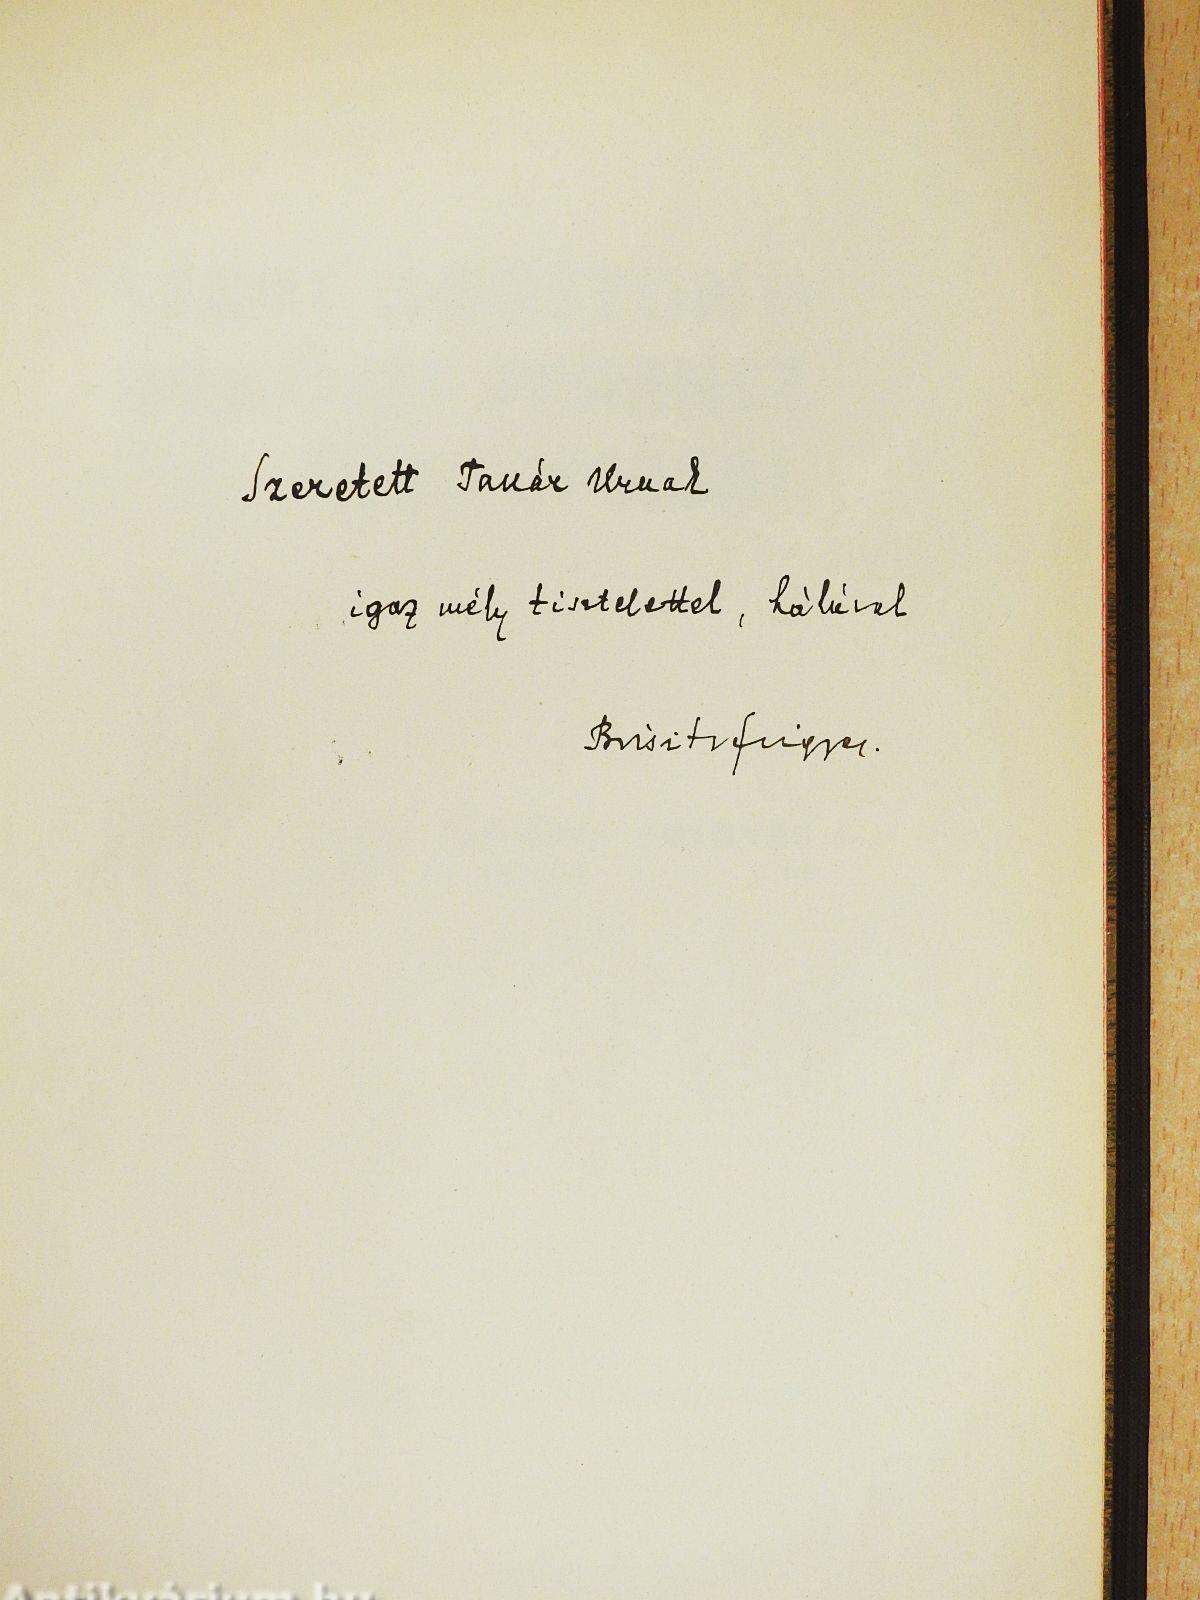 Szeretett Tanár Urnak
igaz mély tisztelettel, hálával
Frigyes.
Antikvárium.hu